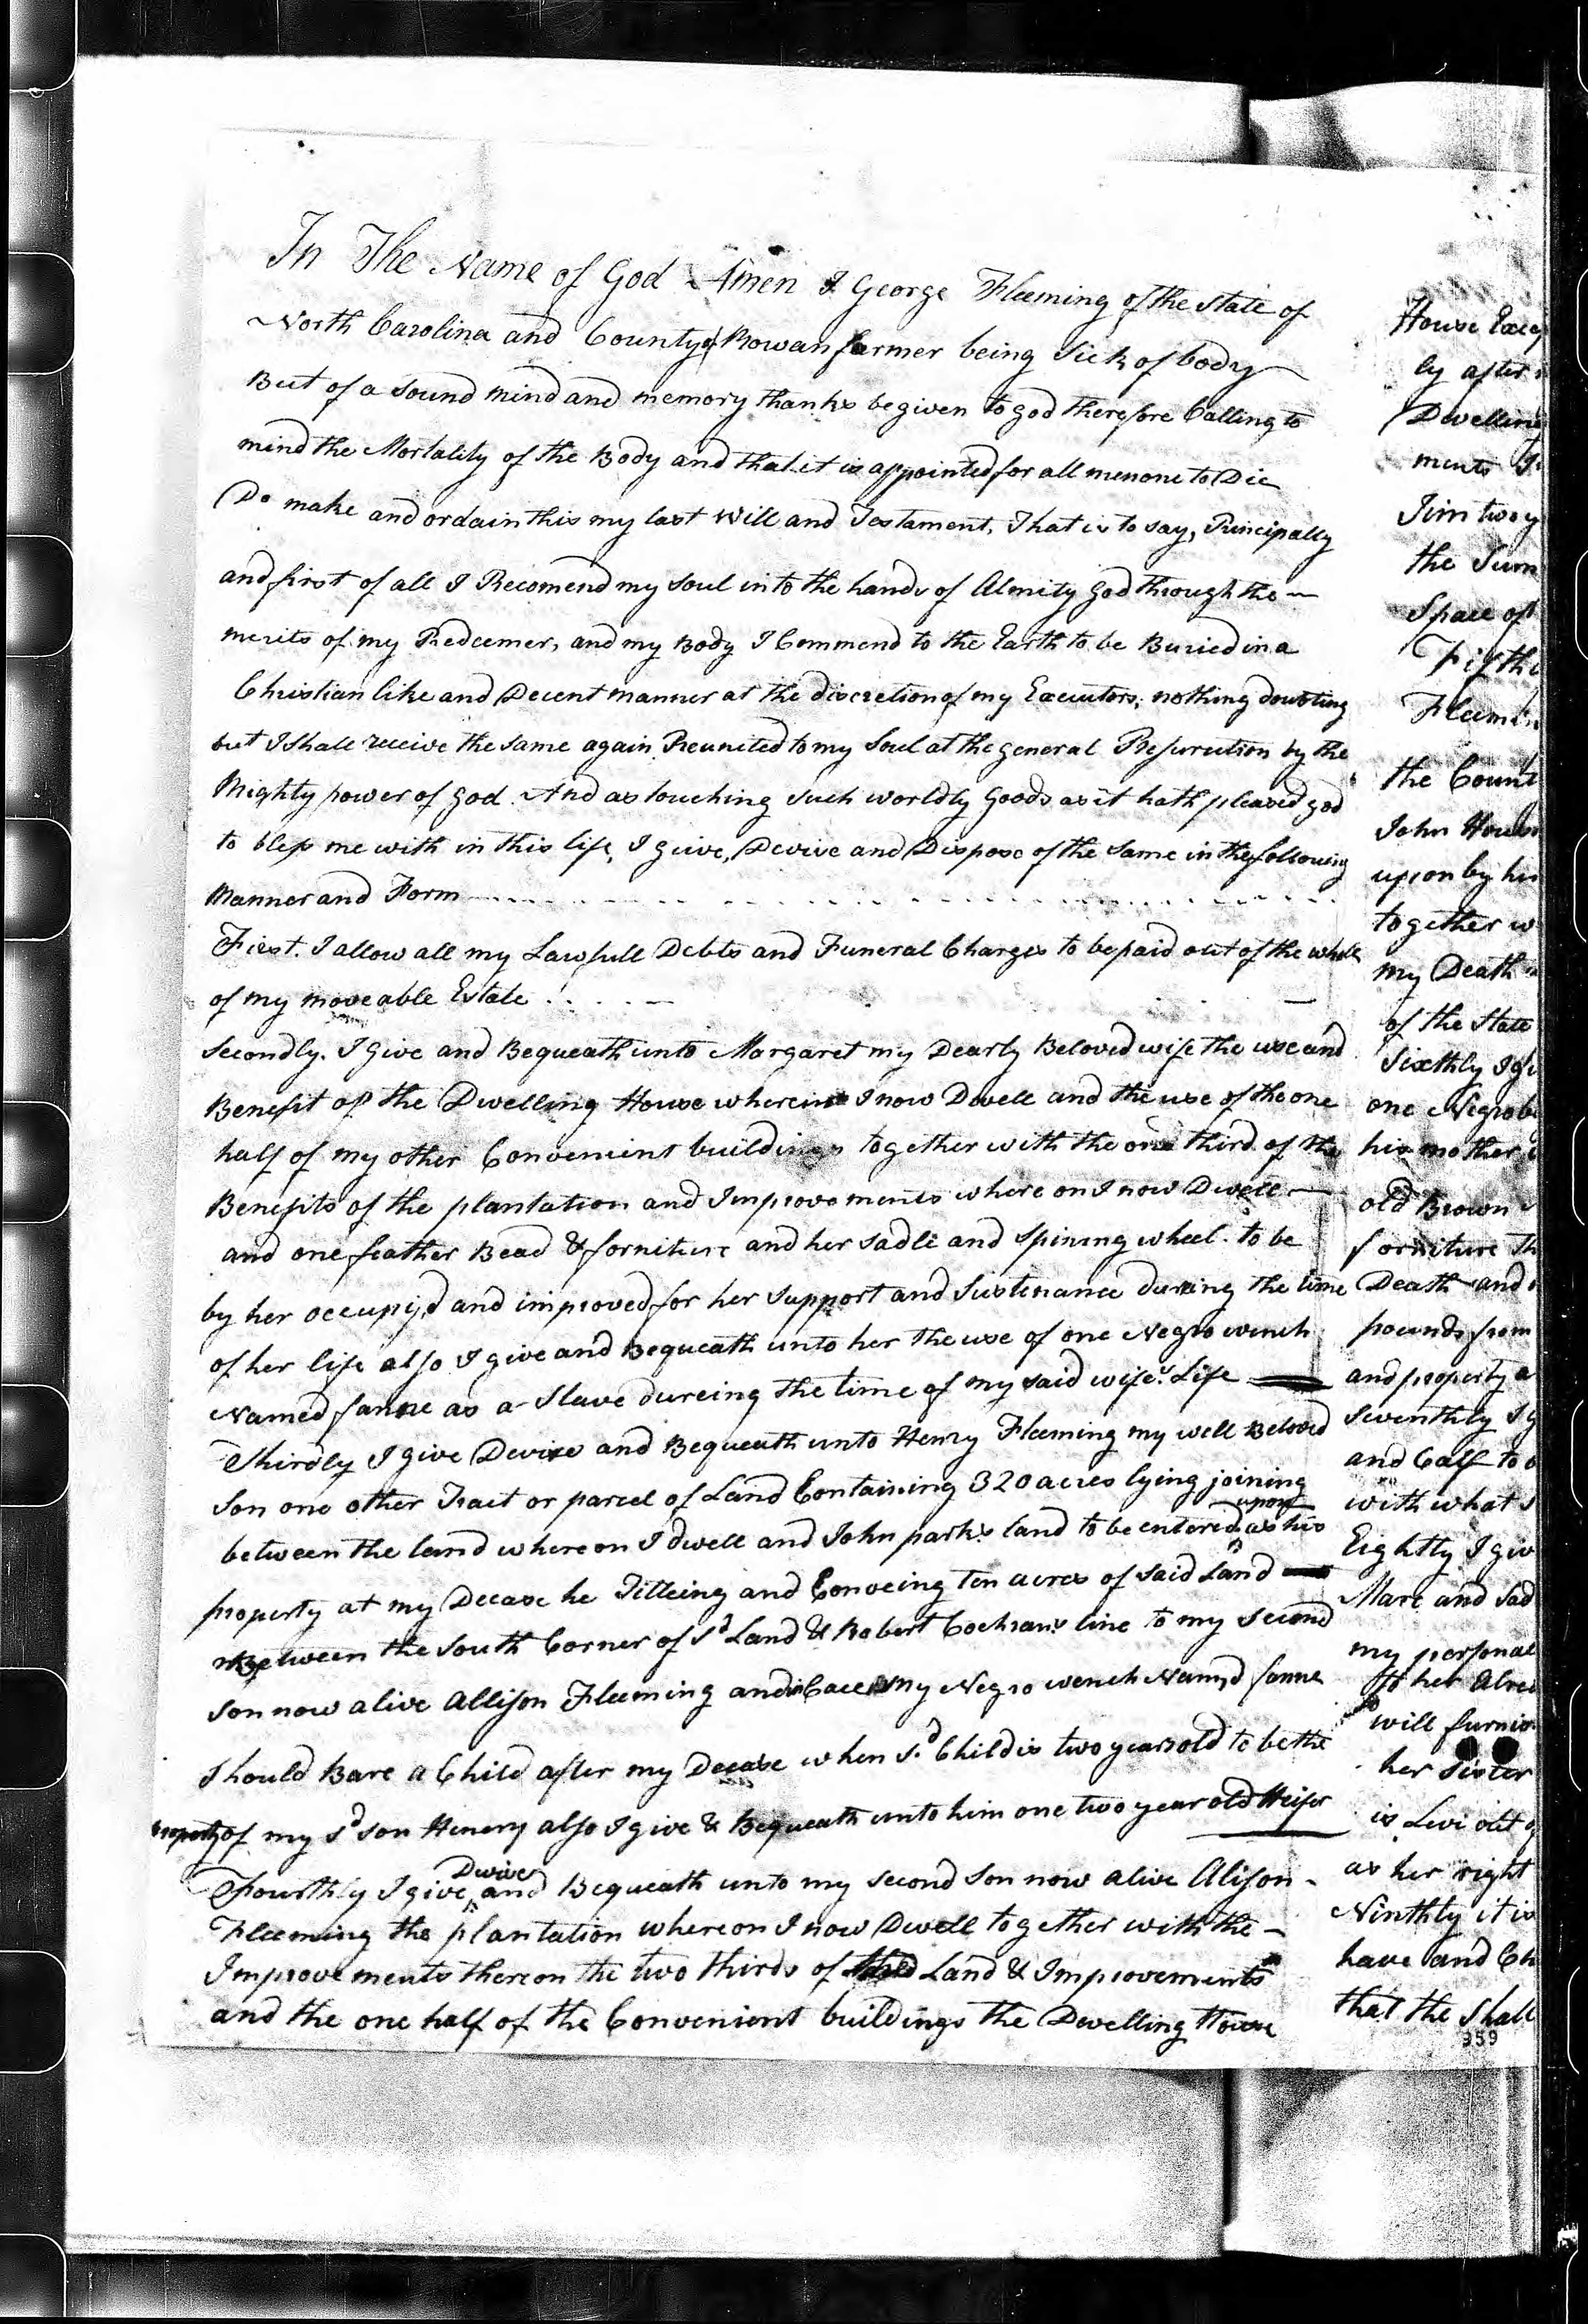 In The Name of God Amen I George Fleeming of the state of
North Carolina and County of Rowan farmer being Sick of body
But of a Sound mind and memory thanks be given to god therefore Calling to
mind the Mortality of the Body and that it is appointed for all men one to Die
Do make and ordain this my last Will and Testament, That is to say, Principally
and first of all I Recomend my Soul into the hands of Almity God through the
merits of my Redeemer, and my Body I Commend to the Earth to be Buried in a
Christian like and Decent manner at the discretion of my Executors; nothing doubting
but I Shall receive the same again Reunited to my Soul at the general Resurution by the
Mighty power of God. And as touching Such worldly Goods as it hath pleased god
to bless me with in this life, I give, Devise and Dispose of the Same in the following
Manner and Form
First. I allow all my Lawfull Debts and Funeral Charges to be paid out of the whole
of my moveable Estate
Secondly. I Give and Bequeath unto Margaret my Dearly Beloved wife the use and
Benefit of the Dwelling House wherein I now Dwell and the use of the one
half of my other Convenient buildings together with the one third of the
Benefits of the plantation and Improvements where on I now Dwell
and one feather Bead & forniture and her Sadle and Spining wheel. to be
by her occupy,d and improved for her Support and Sustenance during the time
of her life also I give and Bequeath unto her the use of one Negro wench
Named fanne as a Slave dureing the time of my said wife's Life
Thirdly I give Devise and Bequeath unto Henry Fleeming my well Beloved
Son one other Tract or parcel of Land Containing 320 acres lying joining
between the land whereon I dwell and John park's land to be entered upon as his
property at my Decase he Titleing and Conveing ten acres of said Land
Between the South Corner of sd Land & Robert Cochran's line to my Second
Son now alive Allison Fleeming and in Case my Negro wench Namyd fanne
Should Bare a Child after my Decase when sd Child is two years old to be the
property of my sd son Henery also I give & Bequeath unto him one two year old Heifer
Fourthly I give Devise and Bequeath unto my Second Son now alive Alison
Fleeming the plantation whereon I now Dwell together with the
Improvements thereon the two thirds of Land & Improvements
and the one half of the Convenient buildings the Dwelling House
House
ly after
Dwelling
ments
Jim two y
the Sum
Space of
Fifth
Fleemin
the Count
John
upon by
together w
my Death
of the State
Sixthly I
one Negro
his mother
old Brown
forniture
Death and
pounds from
and property a
Seventhly I g
and Calf to
with what
Eightly I giv
Mare and Sad
my personal
her
will furnis
her Sister
is out
as her right
Ninthly it is
have and Ch
that the Shall
359